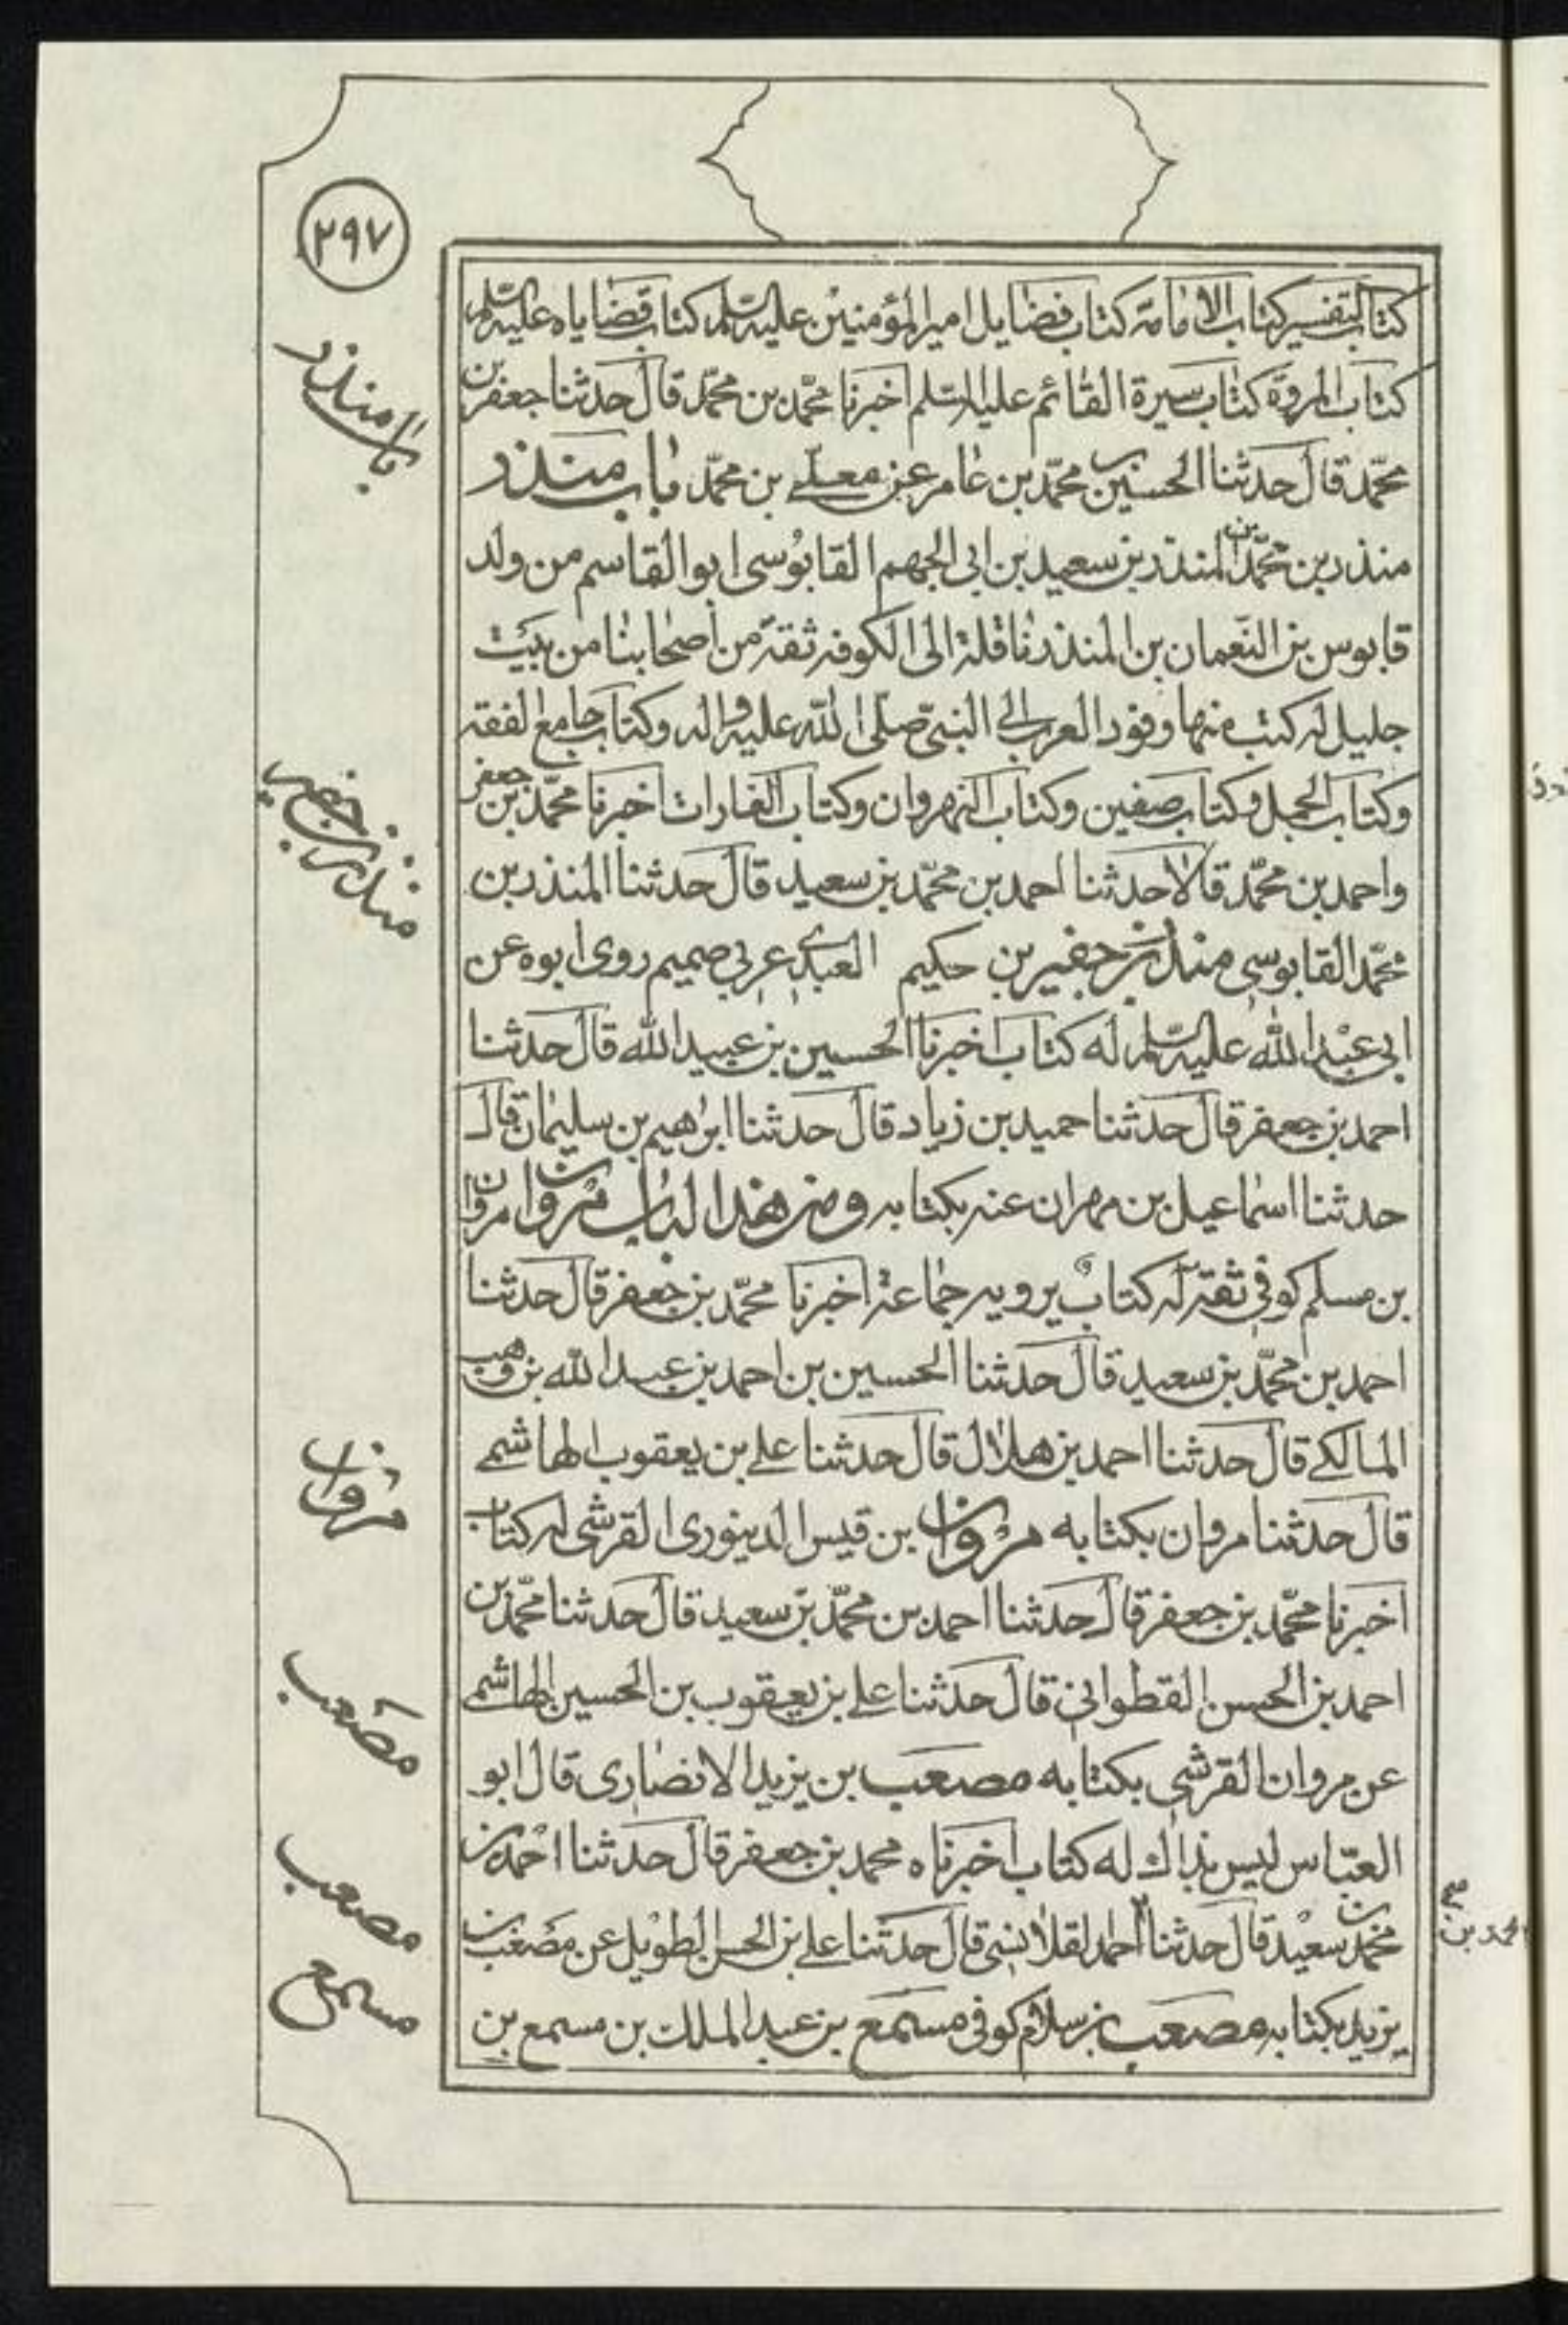 ٢٩٧
كتاب التفسير كتاب الامامة كتاب فضايل امير المؤمنين عليه السلم كتاب قضاياه عليه السلم
كتاب المروة كتاب سيرة القائم عليه السلم اخبرنا محمد بن محمد قال حدثنا جعفر بن
محمد قال حدثنا الحسين بن محمد بن عامر عن معلى بن محمد باب منذر
منذر بن محمد بن المنذر بن سعيد بن ابى الجهم القابوسى ابو القاسم من ولد
قابوس بن النعمان بن المنذر ناقلة الى الكوفه ثقة من اصحابنا من بيت
جليل له كتب منها وفود العرب الى النبى صلى الله عليه واله وكتاب جامع الفقه
وكتاب الجمل وكتاب صفين وكتاب النهروان وكتاب الغارات اخبرنا محمد بن جعفر
واحمد بن محمد قالا حدثنا احمد بن محمد بن سعيد قال حدثنا المنذر بن
محمد القابوسى منذر بن جفير بن حكيم العبدى عربى صميم روى ابوه عن
ابى عبد الله عليه السلم له كتاب اخبرنا الحسين بن عبيد الله قال حدثنا
احمد بن جعفر قال حدثنا حميد بن زياد قال حدثنا ابراهيم بن سليمان قال
حدثنا اسماعيل بن مهران عنه بكتابه ومن هذا الباب مروان مروان
بن مسلم كوفى ثقة له كتاب يرويه جماعة اخبرنا محمد بن جعفر قال حدثنا
احمد بن محمد بن سعيد قال حدثنا الحسين بن احمد بن عبد الله بن وهب
المالكى قال حدثنا احمد بن هلال قال حدثنا على بن يعقوب الهاشمى
قال حدثنا مروان بكتابه مروان بن قيس الدينورى القرشى له كتاب
اخبرنا محمد بن جعفر قال حدثنا احمد بن محمد بن سعيد قال حدثنا محمد بن
احمد بن الحسن القطوانى قال حدثنا على بن يعقوب بن الحسين الهاشمى
عن مروان القرشى بكتابه مصعب بن يزيد الانصارى قال ابو
العباس ليس بذاك له كتاب اخبرناه محمد بن جعفر قال حدثنا احمد بن
محمد بن سعيد قال حدثنا احمد القلانسى قال حدثنا على بن الحسن الطويل عن مصعب بن
يزيد بكتابه مصعب بن سلام كوفى مسمع بن عبد الملك بن مسمع بن
باب منذر
منذر بن جفير
مروان
مصعب
مصعب
مسمع
محمد بن